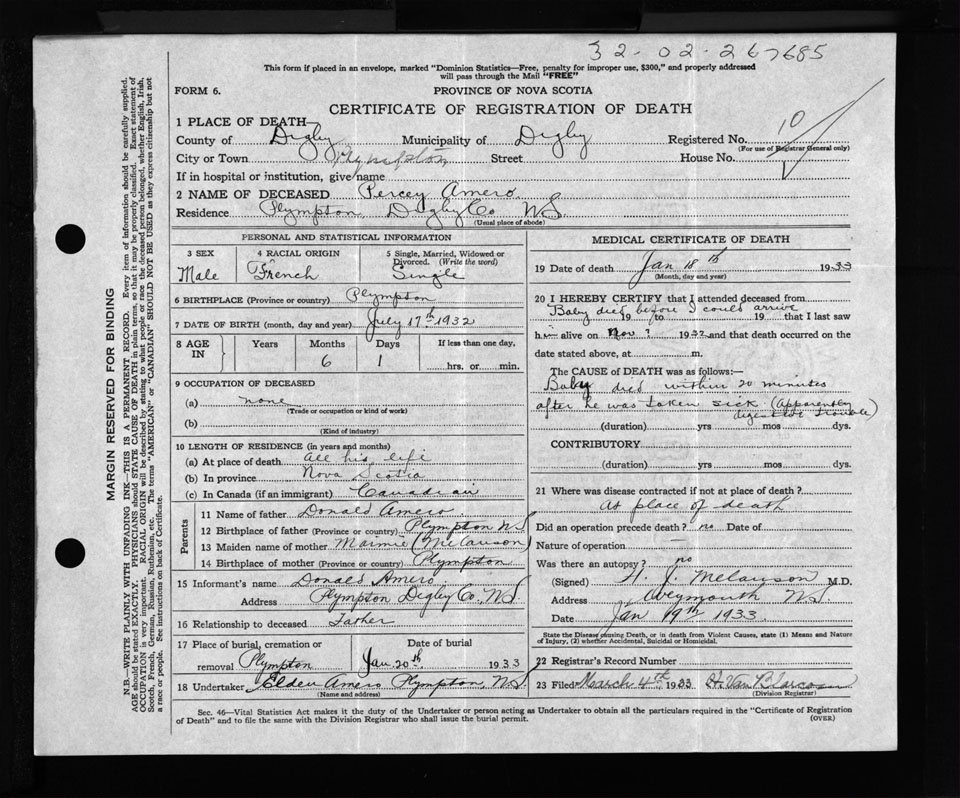 32-02-267685
This form if placed in an envelope, marked "Dominion Statistics—Free, penalty for improper use, $300," and properly addressed
will pass through the Mail "FREE"
FORM 6.
PROVINCE OF NOVA SCOTIA
CERTIFICATE OF REGISTRATION OF DEATH
1 PLACE OF DEATH
County of Digby Municipality of Digby Registered No. 10
(For use of Registrar General only)
City or Town Plympton Street House No.
If in hospital or institution, give name
2 NAME OF DECEASED Percey Amero
Residence Plympton Digby Co NS
(Usual place of abode)
PERSONAL AND STATISTICAL INFORMATION
3 SEX Male
4 RACIAL ORIGIN French
5 Single, Married, Widowed or Divorced. (Write the word) Single
6 BIRTHPLACE (Province or country) Plympton
7 DATE OF BIRTH (month, day and year) July 17th 1932
8 AGE IN Years Months 6 Days 1 If less than one day, hrs. or min.
9 OCCUPATION OF DECEASED
(a) none
(Trade or occupation or kind of work)
(b)
(Kind of industry)
10 LENGTH OF RESIDENCE (in years and months)
(a) At place of death all his life
(b) In province Nova Scotia
(c) In Canada (if an immigrant) Canadian
Parents
11 Name of father Donald Amero
12 Birthplace of father (Province or country) Plympton NS
13 Maiden name of mother Maimie (Melanson)
14 Birthplace of mother (Province or country) Plympton
15 Informant's name Donald Amero
Address Plympton Digby Co., NS.
16 Relationship to deceased Father
17 Place of burial, cremation or removal Plympton
Date of burial Jan 20th 1933
18 Undertaker Elden Amero Plympton, NS
(Name and address)
MEDICAL CERTIFICATE OF DEATH
19 Date of death Jan 18th 1933
(Month, day and year)
20 I HEREBY CERTIFY that I attended deceased from
Baby died before I could arrive
19 to 19 that I last saw
him alive on Nov ? 1932 and that death occurred on the
date stated above, at m.
The CAUSE of DEATH was as follows:—
Baby died within 20 minutes
after he was taken sick (apparently
digestive trouble)
(duration) yrs mos dys.
CONTRIBUTORY
(duration) yrs mos dys.
21 Where was disease contracted if not at place of death?
at place of death
Did an operation precede death? no Date of
Nature of operation —
Was there an autopsy? no
(Signed) H. J. Melanson M.D.
Address Weymouth NS.
Date Jan 19th 1933.
State the Disease causing Death, or in death from Violent Causes, state (1) Means and Nature
of Injury, (2) whether Accidental, Suicidal or Homicidal.
22 Registrar's Record Number
23 Filed March 4th 1933 H. Van Blarcom
(Division Registrar)
Sec. 46—Vital Statistics Act makes it the duty of the Undertaker or person acting as Undertaker to obtain all the particulars required in the "Certificate of Registration
of Death" and to file the same with the Division Registrar who shall issue the burial permit.
(OVER)
MARGIN RESERVED FOR BINDING
N.B.—WRITE PLAINLY WITH UNFADING INK—THIS IS A PERMANENT RECORD. Every item of information should be carefully supplied.
AGE should be stated EXACTLY. PHYSICIANS should STATE CAUSE OF DEATH in plain terms, so that it may be properly classified. Exact statement of
OCCUPATION is very important. RACIAL ORIGIN will be described by stating to what people or race the deceased person belonged, whether English, Irish,
Scotch, French, German, Russian, Ruthenian, etc. The terms "AMERICAN" or "CANADIAN" SHOULD NOT BE USED as they express citizenship but not
a race or people. See instructions on back of Certificate.